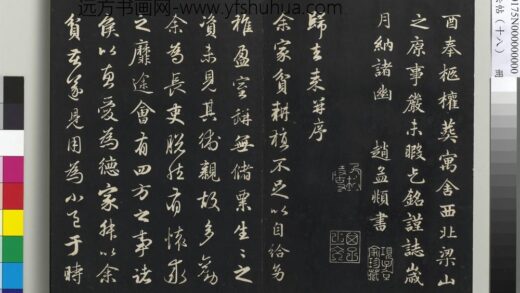 远方书画 www.yfshuhua.com
酉奉柩權葬寓舍西北梁山
之原事嚴未暇乞銘謹誌歲
月納諸幽 趙孟頫書
歸去來并序
余家貧耕植不足以自給幼
稚盈室缾無儲粟生生之
資未見其術親故多勸
余為長吏脫然有懷求
之靡途會有四方之事諸
侯以惠愛為德家叔以余
貧苦遂見用為小邑于時
帖（十八）
0175N000000000